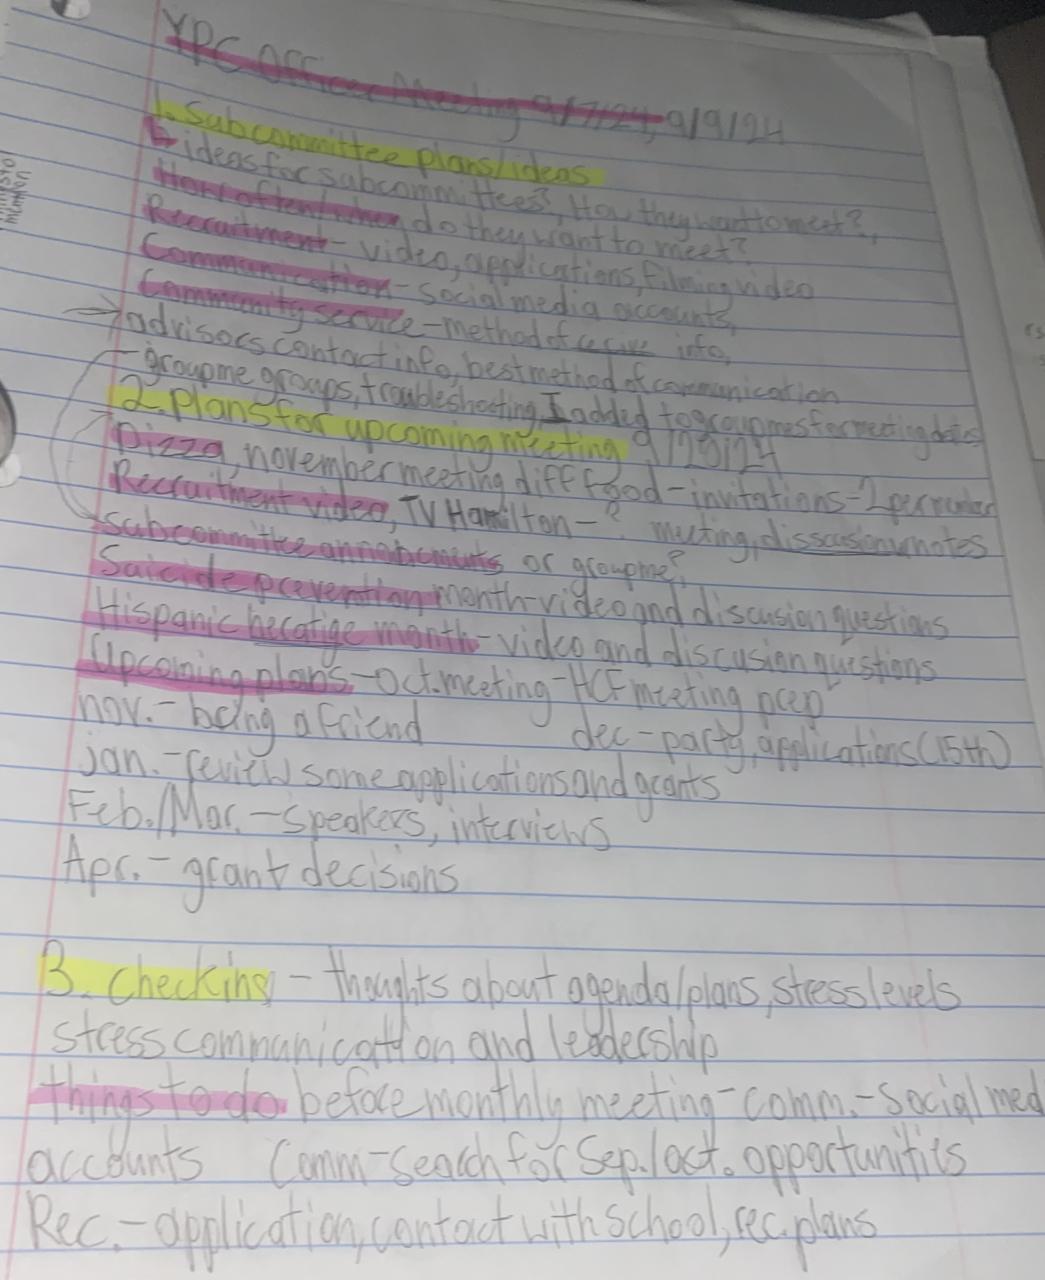 YPC Officer Meeting 9/7/24, 9/9/24
1. Subcommittee plans/ideas
ideas for subcommittees?, How they want to meet?,
How often/when do they want to meet?
Recruitment - video, applications, filming video
Communication - social media accounts,
Community service - method of info,
→ advisors contact info, best method of communication
- groupme groups, troubleshooting, I added to groupmes for meeting dates
2. Plans for upcoming meeting 9/20/24
Pizza, november meeting diff food - invitations - 2 per
Recruitment video, TV Hamilton - ? meeting, notes
subcommittee or groupme?,
Suicide prevention month - video and discusion questions
Hispanic heratige month - video and discusion questions
Upcoming plans - Oct. meeting - HCF meeting prep
nov. - being a friend dec - party, applications (15th)
jan. - review some applications and grants
Feb./Mar. - speakers, interviews
Apr. - grant decisions
3. Checking - thoughts about agenda/plans, stress levels
stress communication and leadership
things to do before monthly meeting - comm. - social med
accounts Comm - search for Sep./oct. opportunities
Rec. - application, contact with school, rec. plans